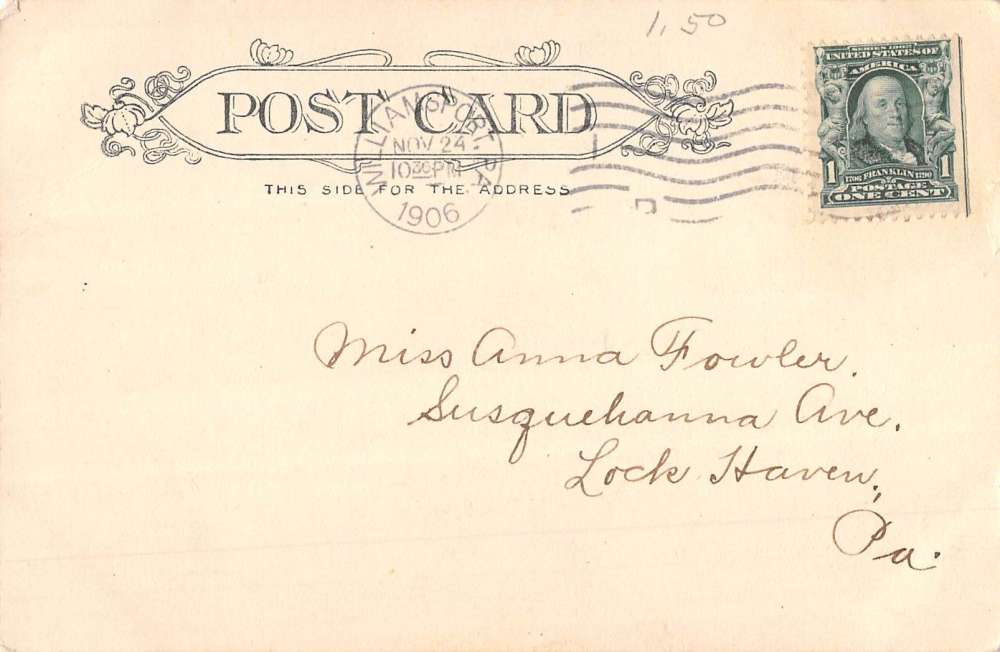 1.50
SERIES 1902
UNITED STATES OF
AMERICA
1706 FRANKLIN 1790
1 POSTAGE 1
ONE CENT
POST CARD
THIS SIDE FOR THE ADDRESS
WILLIAMSPORT, PA
NOV 24
10 30 PM
1906
Miss Anna Fowler.
Susquehanna Ave.
Lock Haven,
Pa.